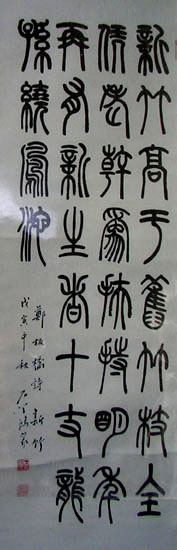 新竹高于舊竹枝全
凭老幹為扶持明年
再有新生者十丈龍
孫繞鳳池
鄭板橋詩新竹
戊寅中秋